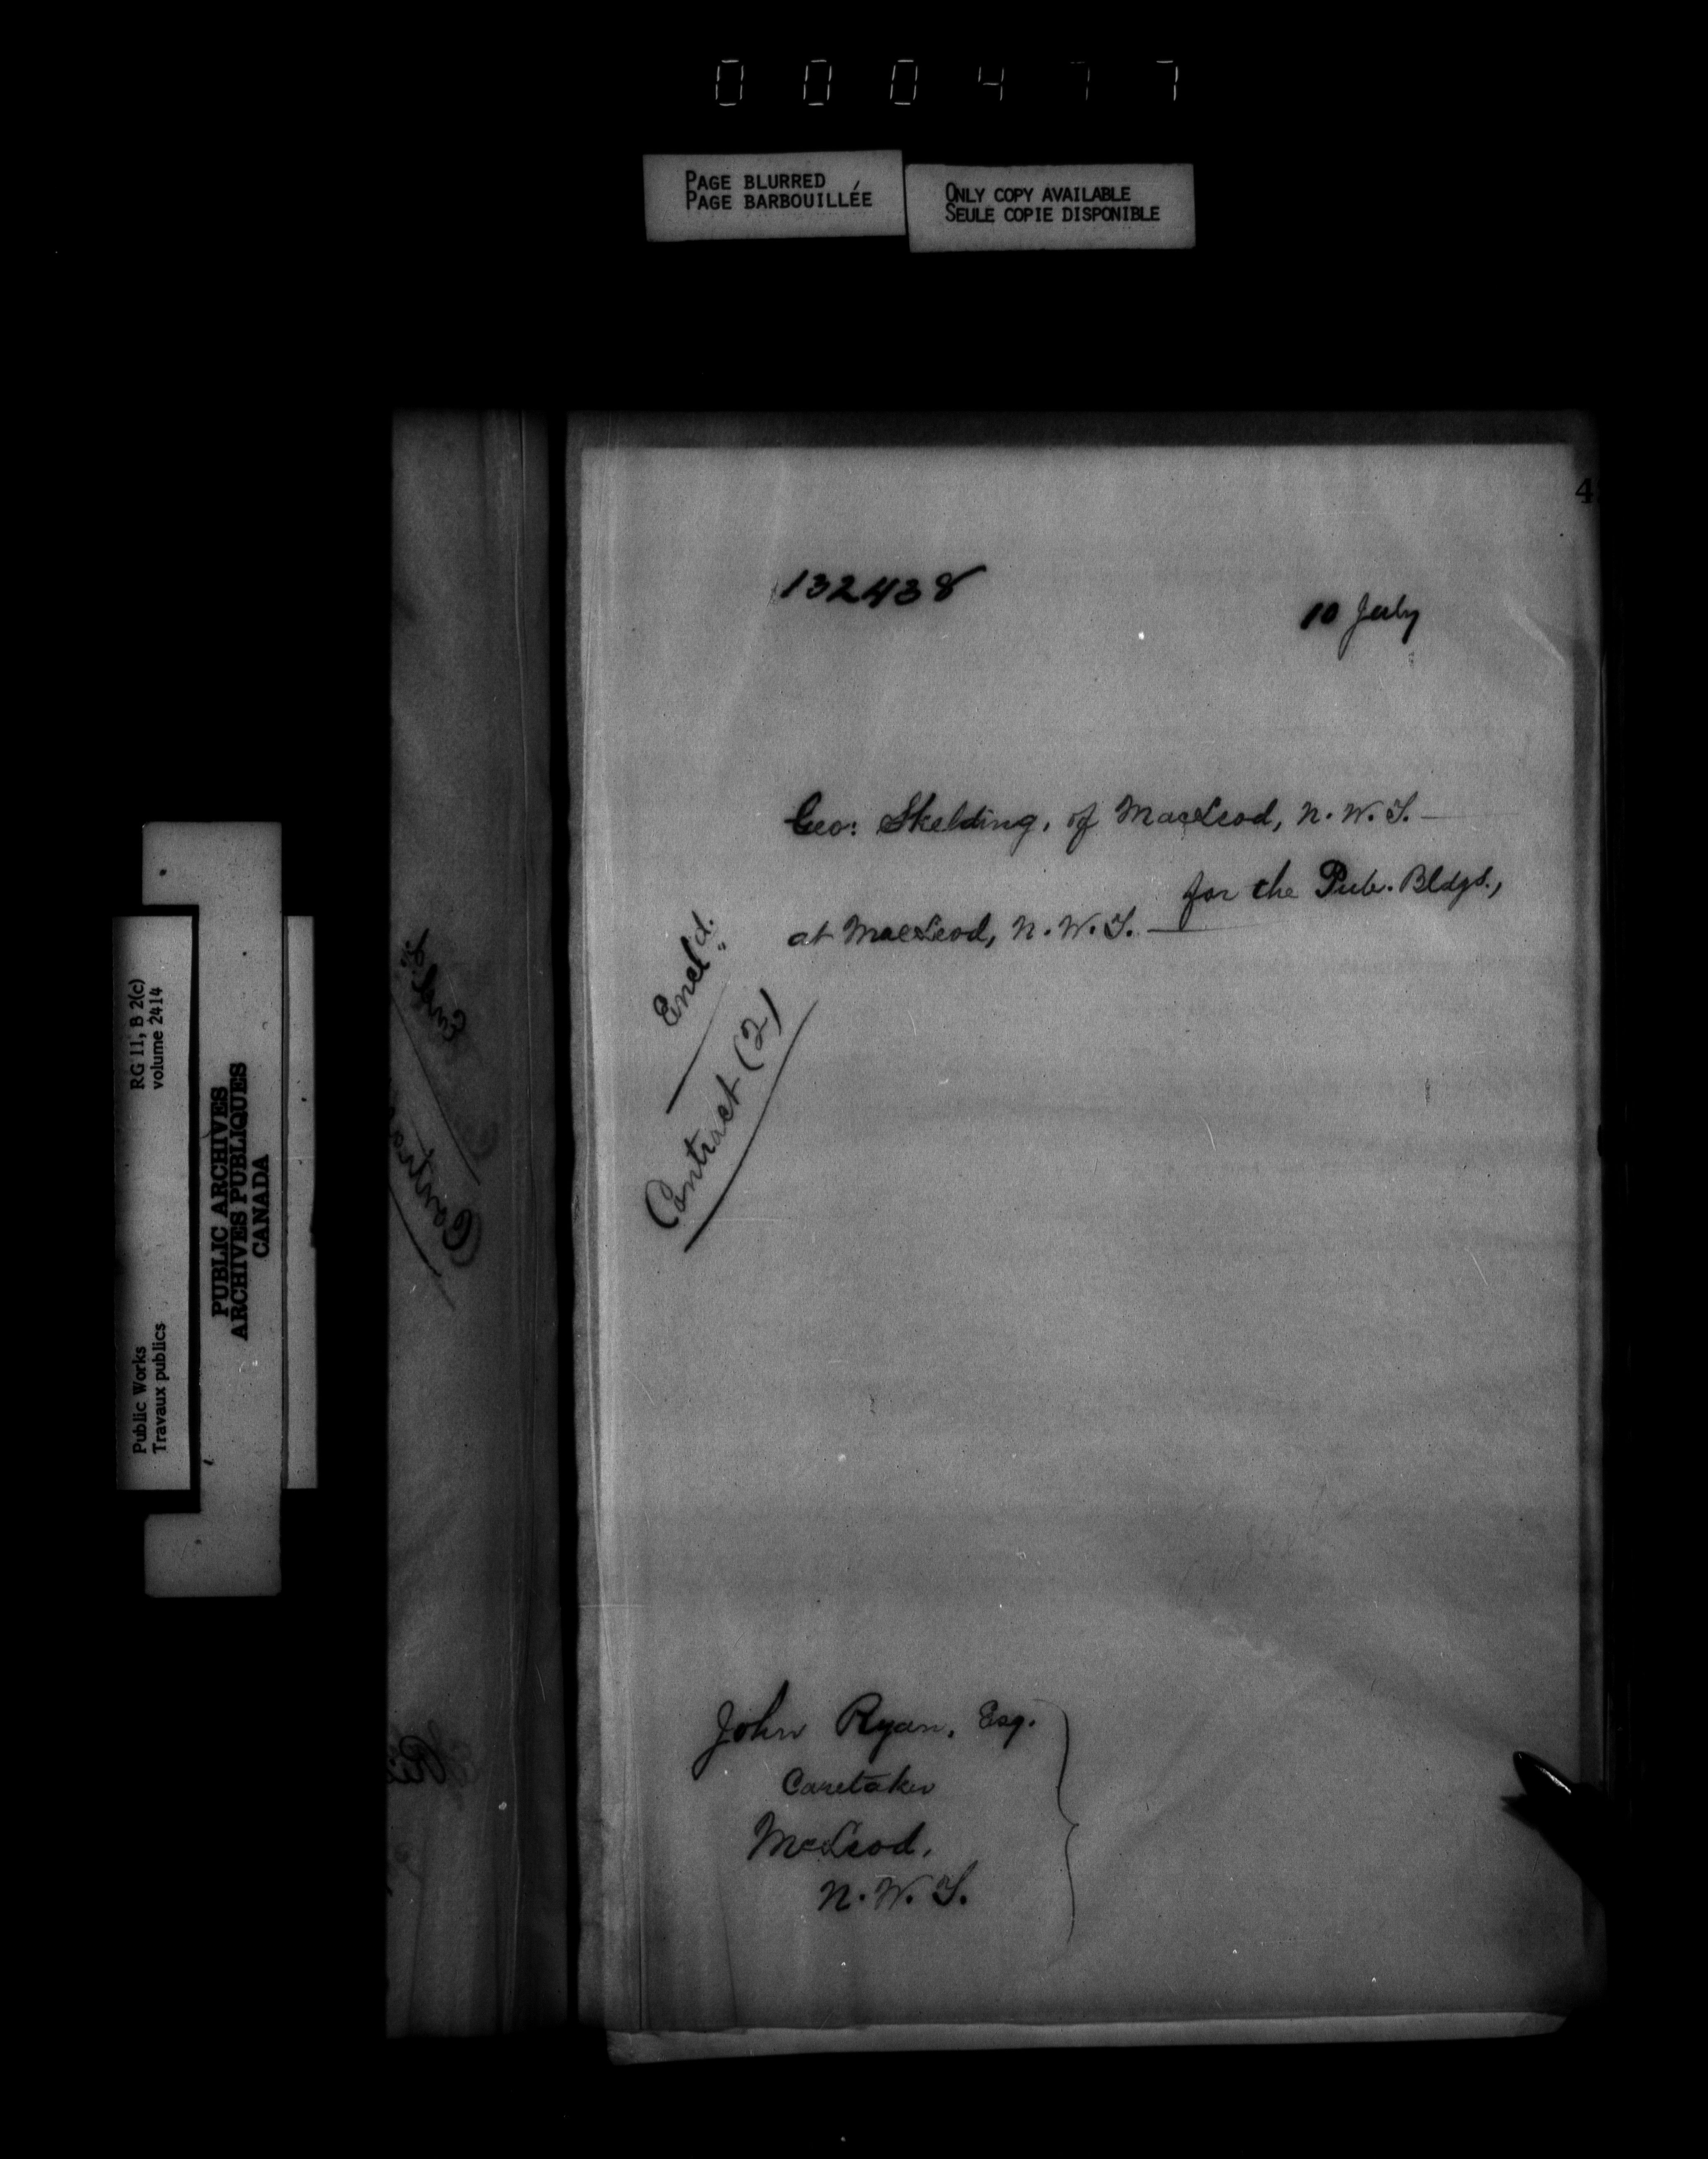 000477
PAGE BLURRED
PAGE BARBOUILLÉE
ONLY COPY AVAILABLE
SEULE COPIE DISPONIBLE
4
132438
10 July
Geo: Skelding, of MacLeod, N.W.T.
for the Pub. Bldgs.,
at MacLeod, N.W.T.
Encl'd.
Contract (2)
John Ryan, Esq.
Caretaker
McLeod,
N.W.T.
RG 11, B 2(c)
volume 2414
Public Works
Travaux publics
PUBLIC ARCHIVES
ARCHIVES PUBLIQUES
CANADA